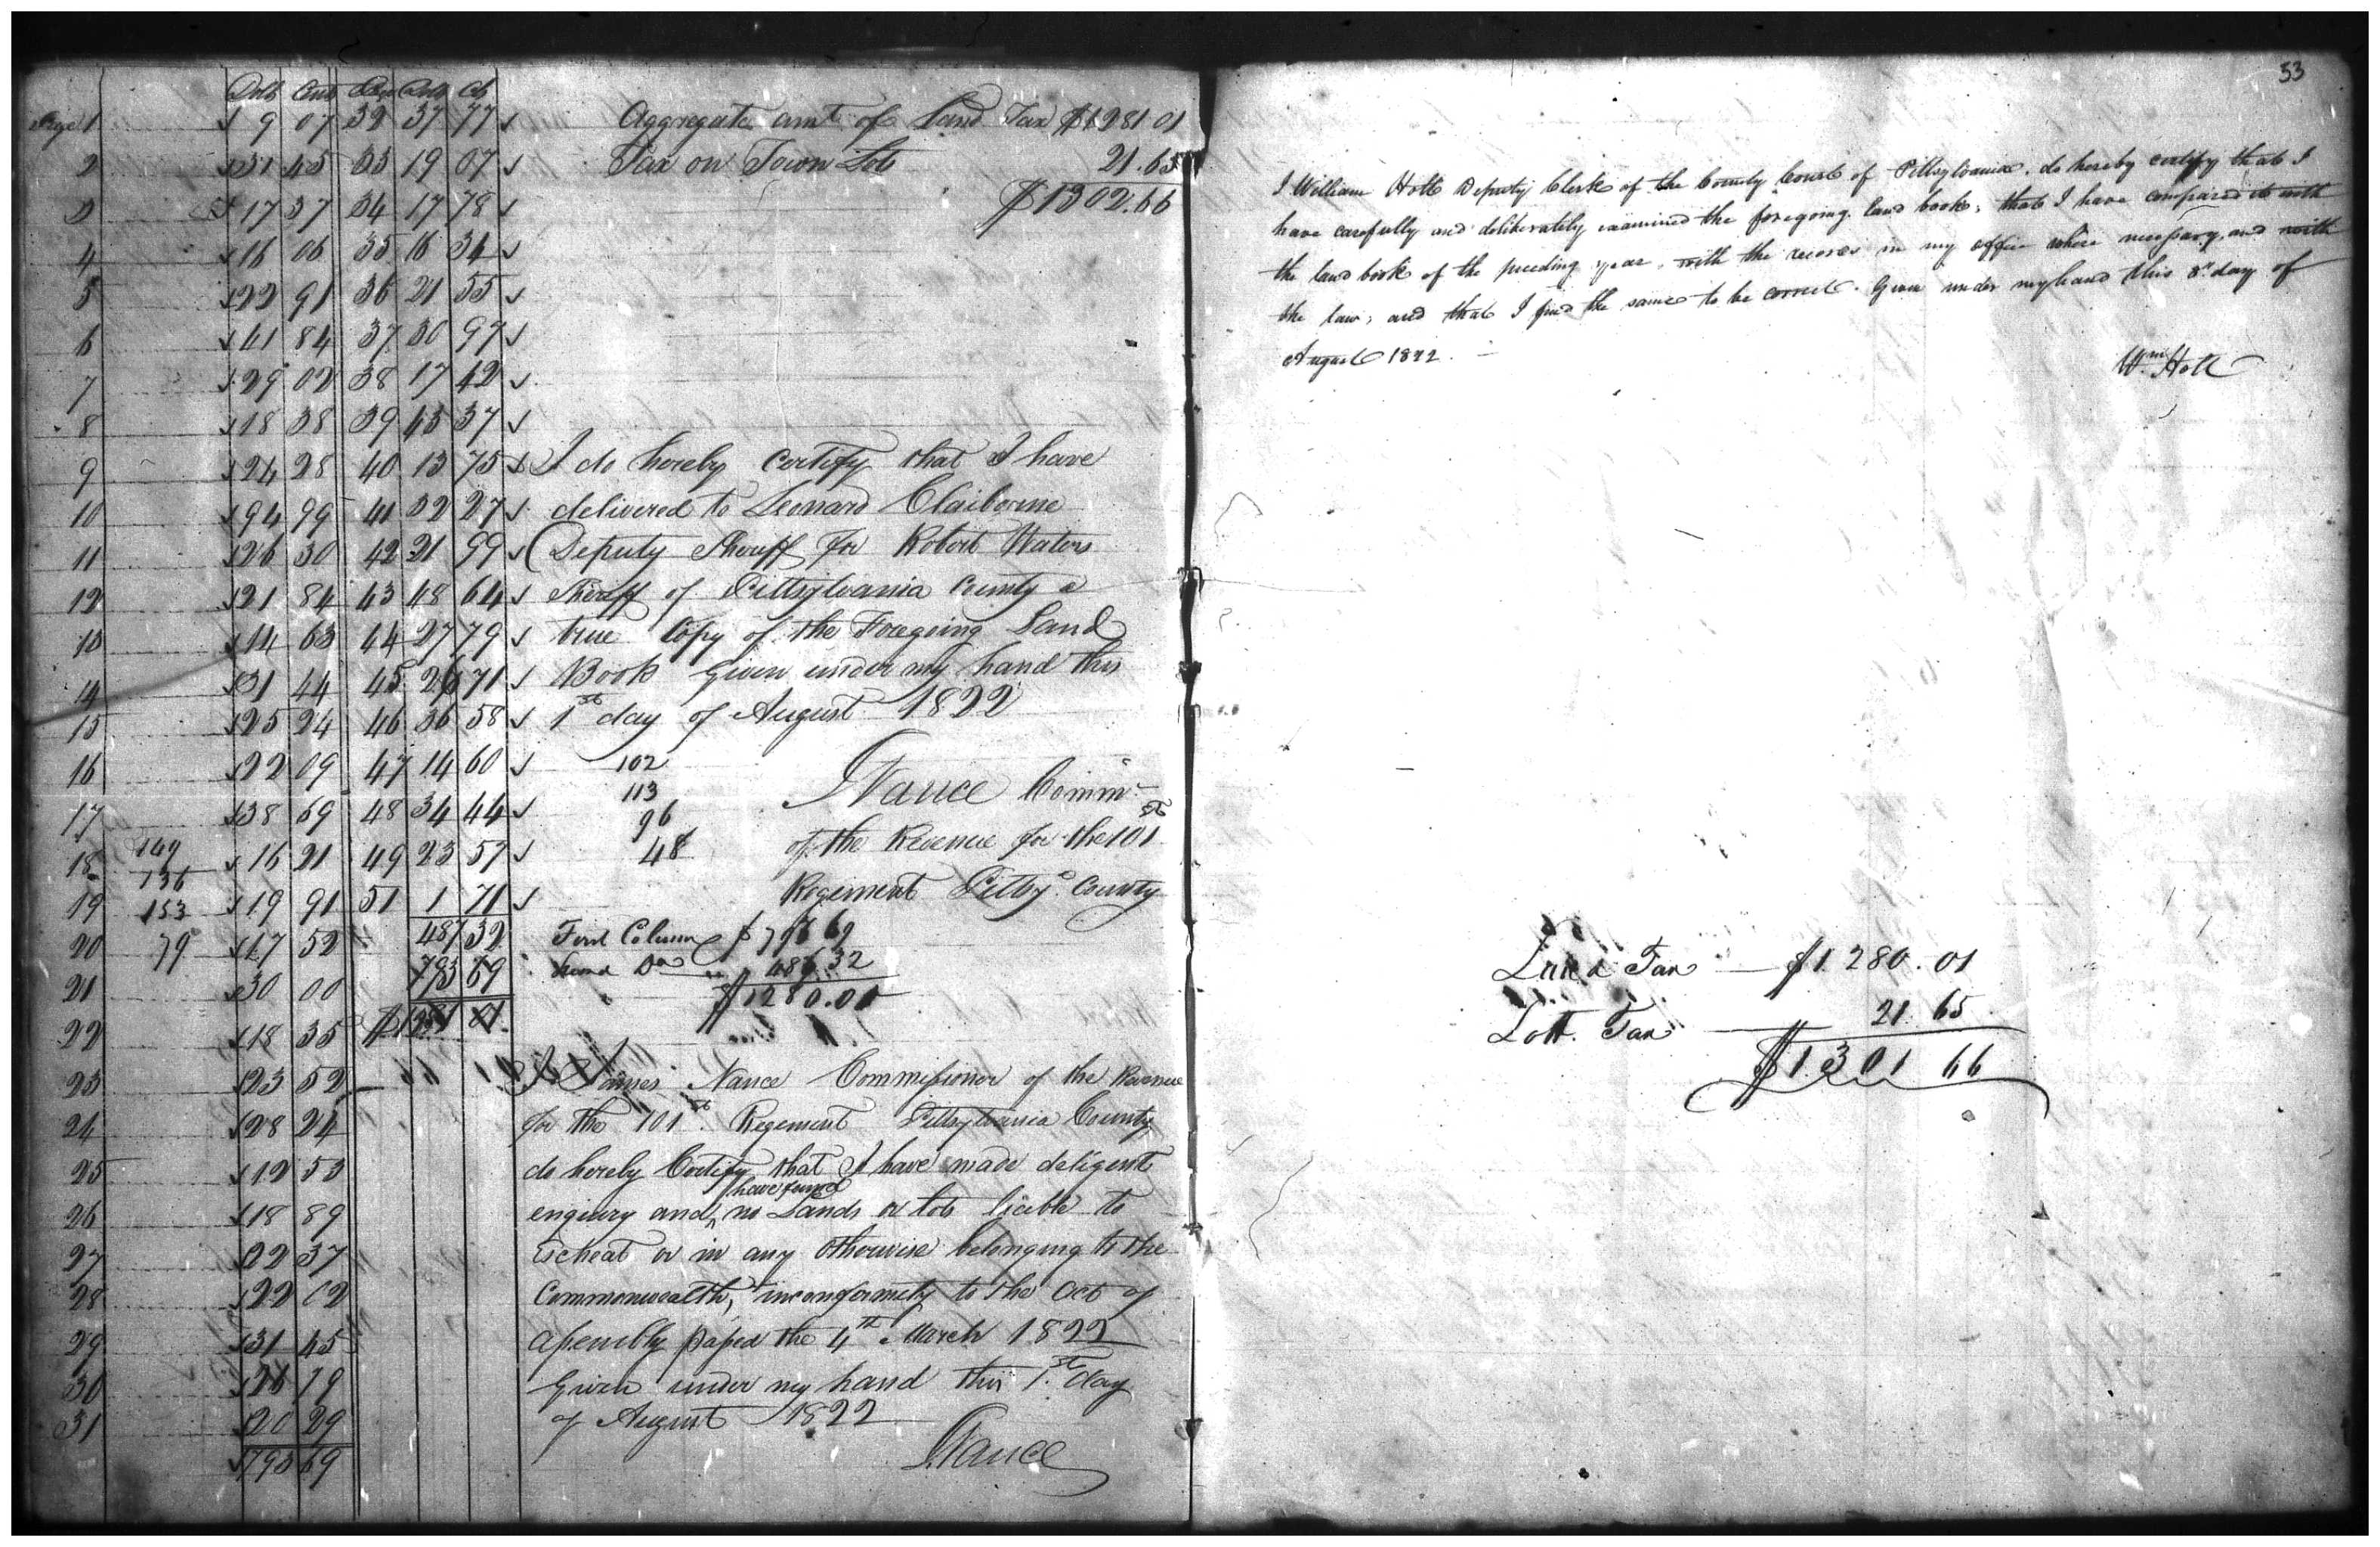 Dolls Cents Page Dolls Cts
Page 1 9 07 32 37 77
2 31 45 33 19 07
3 17 37 34 17 78
4 16 06 35 16 34
5 22 91 36 21 55
6 41 84 37 30 97
7 29 02 38 17 42
8 18 38 39 43 37
9 24 28 40 13 75
10 94 99 41 32 27
11 26 30 42 21 99
12 21 84 43 48 64
13 14 63 44 27 79
14 31 44 45 26 71
15 25 24 46 36 58
16 22 09 47 14 60
17 38 69 48 34 44
18 16 21 49 23 57
19 19 91 51 1 71
20 17 52 32
21 30 00 793 69
22 18 35
23 23 52
24 28 24
25 12 53
26 18 89
27 22 37
28 22 62
29 31 45
30 26 19
31 20 29
793 69
149
136
153
79
Aggregate amt of Land Tax $1281 01
Tax on Town Lots 21.65
$1302.66
I do hereby Certify that I have
delivered to Leonard Claiborne
Deputy Sheriff for Robert Waters
Sheriff of Pittsylvania County a
true Copy of the Foregoing Land
Book Given under my hand this
1st day of August 1822
102
113
96
48
J Nance Commr
of the Revenue for the 101st
Regiment Pittsy.a County
First Column $793 69
Second Do 486.32
$1280.01
I James Nance Commissioner of the Revenue
for the 101st Regement Pittsylvania County
do hereby Certify that I have made deligent
enquiry and have found no Lands or lots liable to
escheat or in any otherwise belonging to the
Commonwealth, inconformety to the Act of
Assembly passed the 4th March 1822
Given under my hand this 1st day
of August 1822
J Nance
53
I William Holt Deputy Clerk of the County Court of Pittsylvania, do hereby certify that I
have carefully and deliberately examined the foregoing land book, that I have compared it with
the land book of the preceding year, with the records in my office where necessary, and with
the law, and that I find the same to be correct. Given under my hand this 8th day of
August 1822.
Wm Holt
Land Tax $1280.01
Lott Tax 21.65
$1301 66